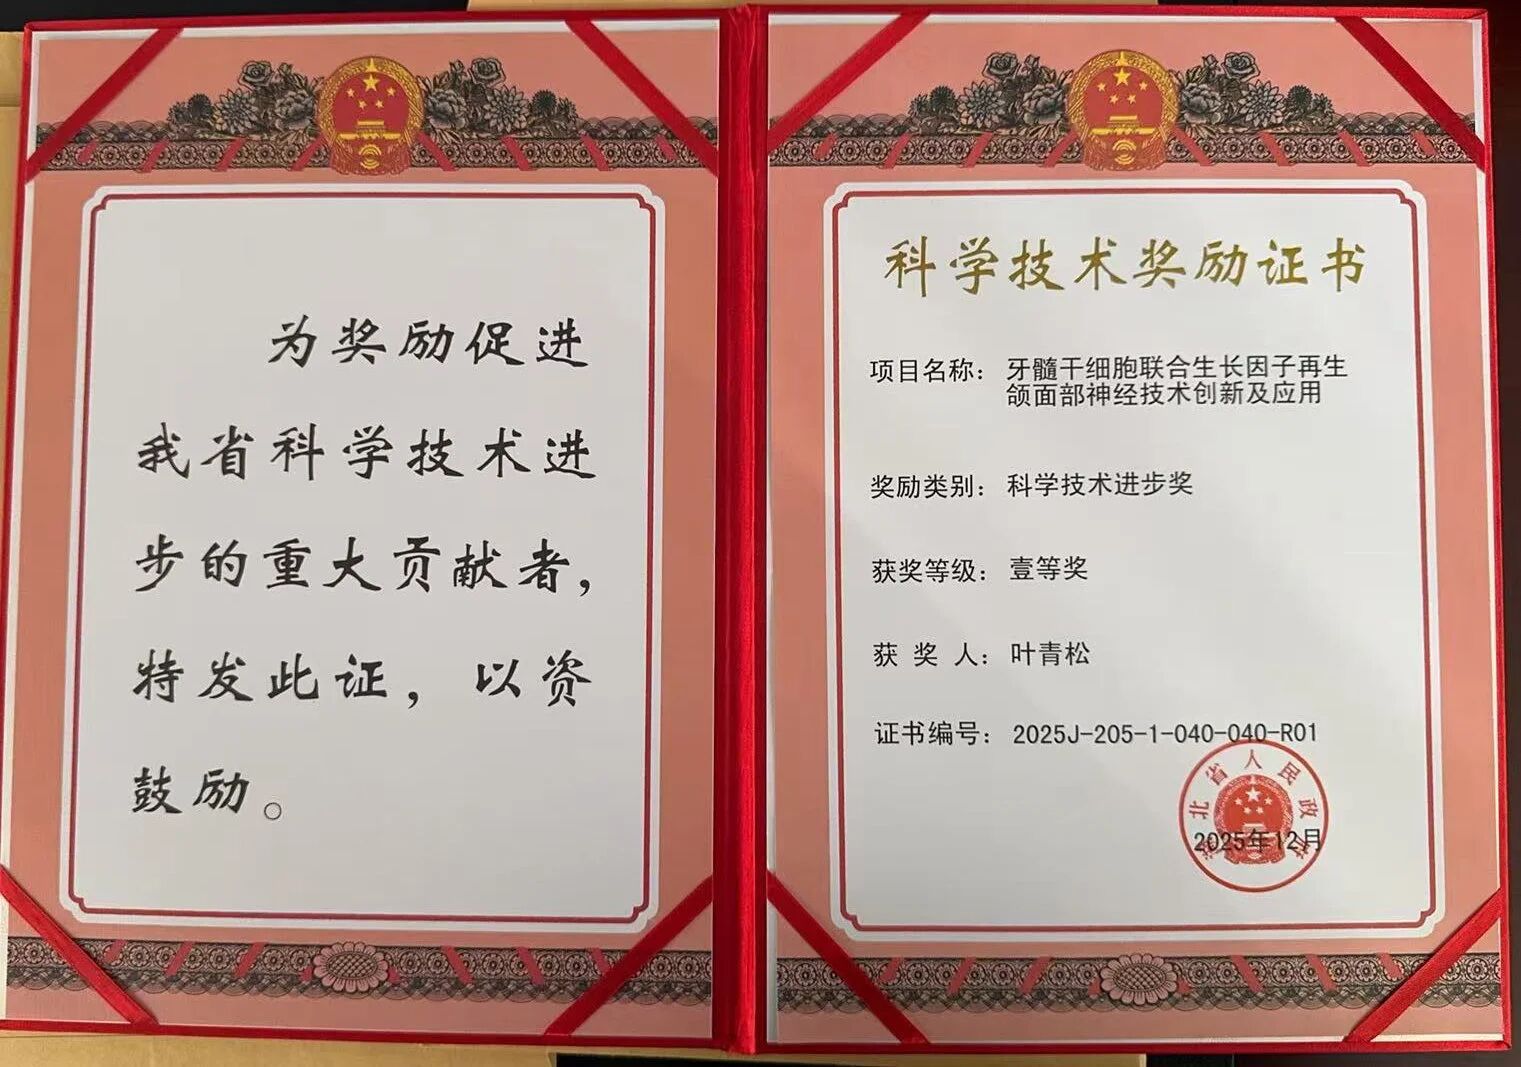 为奖励促进
我省科学技术进
步的重大贡献者，
特发此证，以资
鼓励。
科学技术奖励证书
项目名称：牙髓干细胞联合生长因子再生
颌面部神经技术创新及应用
奖励类别：科学技术进步奖
获奖等级：壹等奖
获 奖 人：叶青松
证书编号：2025J-205-1-040-040-R01
北省人民政
2025年12月